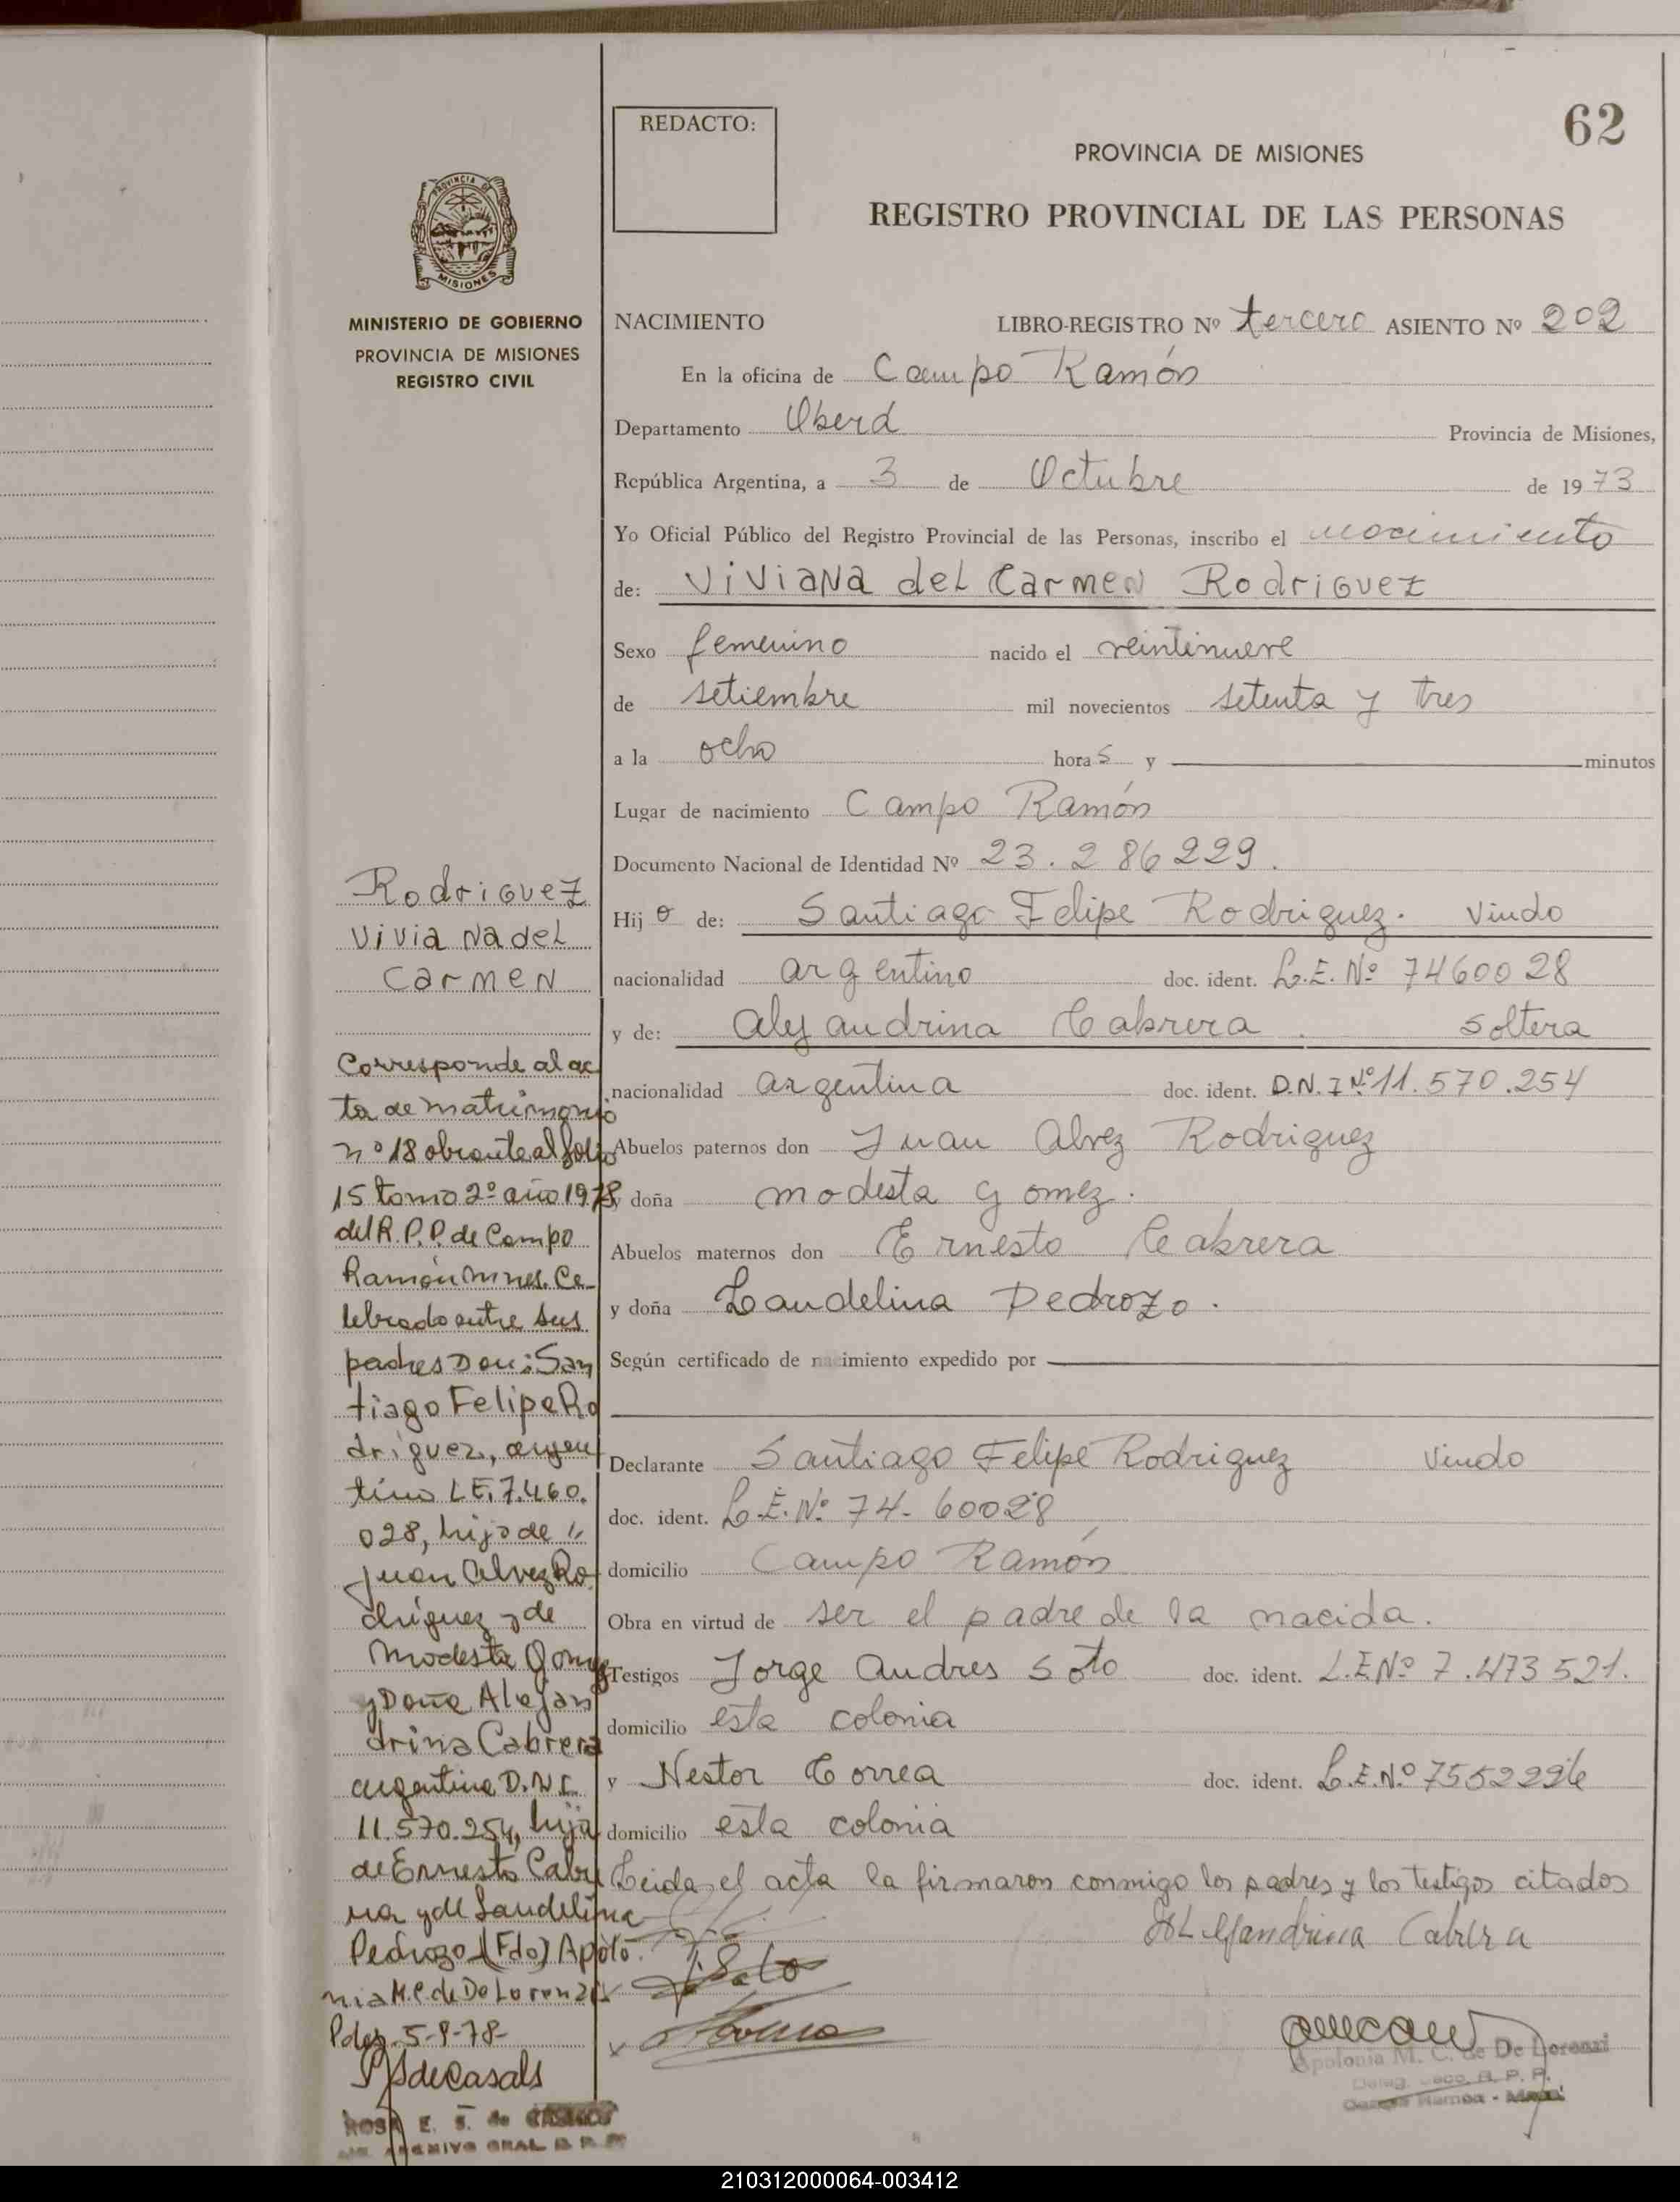 62
REDACTO:
PROVINCIA DE MISIONES
REGISTRO PROVINCIAL DE LAS PERSONAS
PROVINCIA DE
MISIONES
MINISTERIO DE GOBIERNO
PROVINCIA DE MISIONES
REGISTRO CIVIL
NACIMIENTO LIBRO-REGISTRO Nº tercero ASIENTO Nº 202
En la oficina de Campo Ramón
Departamento Oberá Provincia de Misiones,
República Argentina, a 3 de Octubre de 1973
Yo Oficial Público del Registro Provincial de las Personas, inscribo el nacimiento
de: Viviana del Carmen Rodriguez
Sexo femenino nacido el veintinueve
de setiembre mil novecientos setenta y tres
a la ocho horas y minutos
Lugar de nacimiento Campo Ramón
Documento Nacional de Identidad Nº 23.286229.
Hijo de: Santiago Felipe Rodriguez. Viudo
nacionalidad argentino doc. ident. L.E. Nº 7460028
y de: Alejandrina Cabrera. Soltera
nacionalidad argentina doc. ident. D.N.I Nº 11.570.254
Abuelos paternos don Juan Alvez Rodriguez
y doña modesta gomez.
Abuelos maternos don Ernesto Cabrera
y doña Laudelina Pedrozo.
Según certificado de nacimiento expedido por
Declarante Santiago Felipe Rodriguez Viudo
doc. ident. L.E. Nº 74-60028
domicilio Campo Ramón
Obra en virtud de ser el padre de la nacida.
Testigos Jorge Andres Soto doc. ident. L.E Nº 7.473521.
domicilio esta colonia
y Nestor Correa doc. ident. L.E.Nº 7552226
domicilio esta colonia
Leida el acta la firmaron conmigo los padres y los testigos citados
Alejandrina Cabrera
J. Soto
Apolonia M. C. de De Lorenzi
Rodriguez
Viviana del
Carmen
Corresponde al ac
ta de matrimonio
nº 18 obrante al folio
15 tomo 2º año 1978
del R.P.P. de Campo
Ramón Mnes. Ce
lebrado entre sus
padres Don: San
tiago Felipe Ro
driguez, argen
tino L E. 7.460.
028, hijo de "
Juan Alvez Ro
driguez y de
Modesta Gomez
y Doña Alejan
drina Cabrera
argentina D.N.I.
11.570.254, hija
de Ernesto Cabre
ra y de Laudelina
Pedrozo (Fdo) Apolo
nia M.C. de De Lorenzi
Pdas. 5-9-78-
ROSA E. S. de CASALS
ARCHIVO GRAL R. P. P.
210312000064-003412